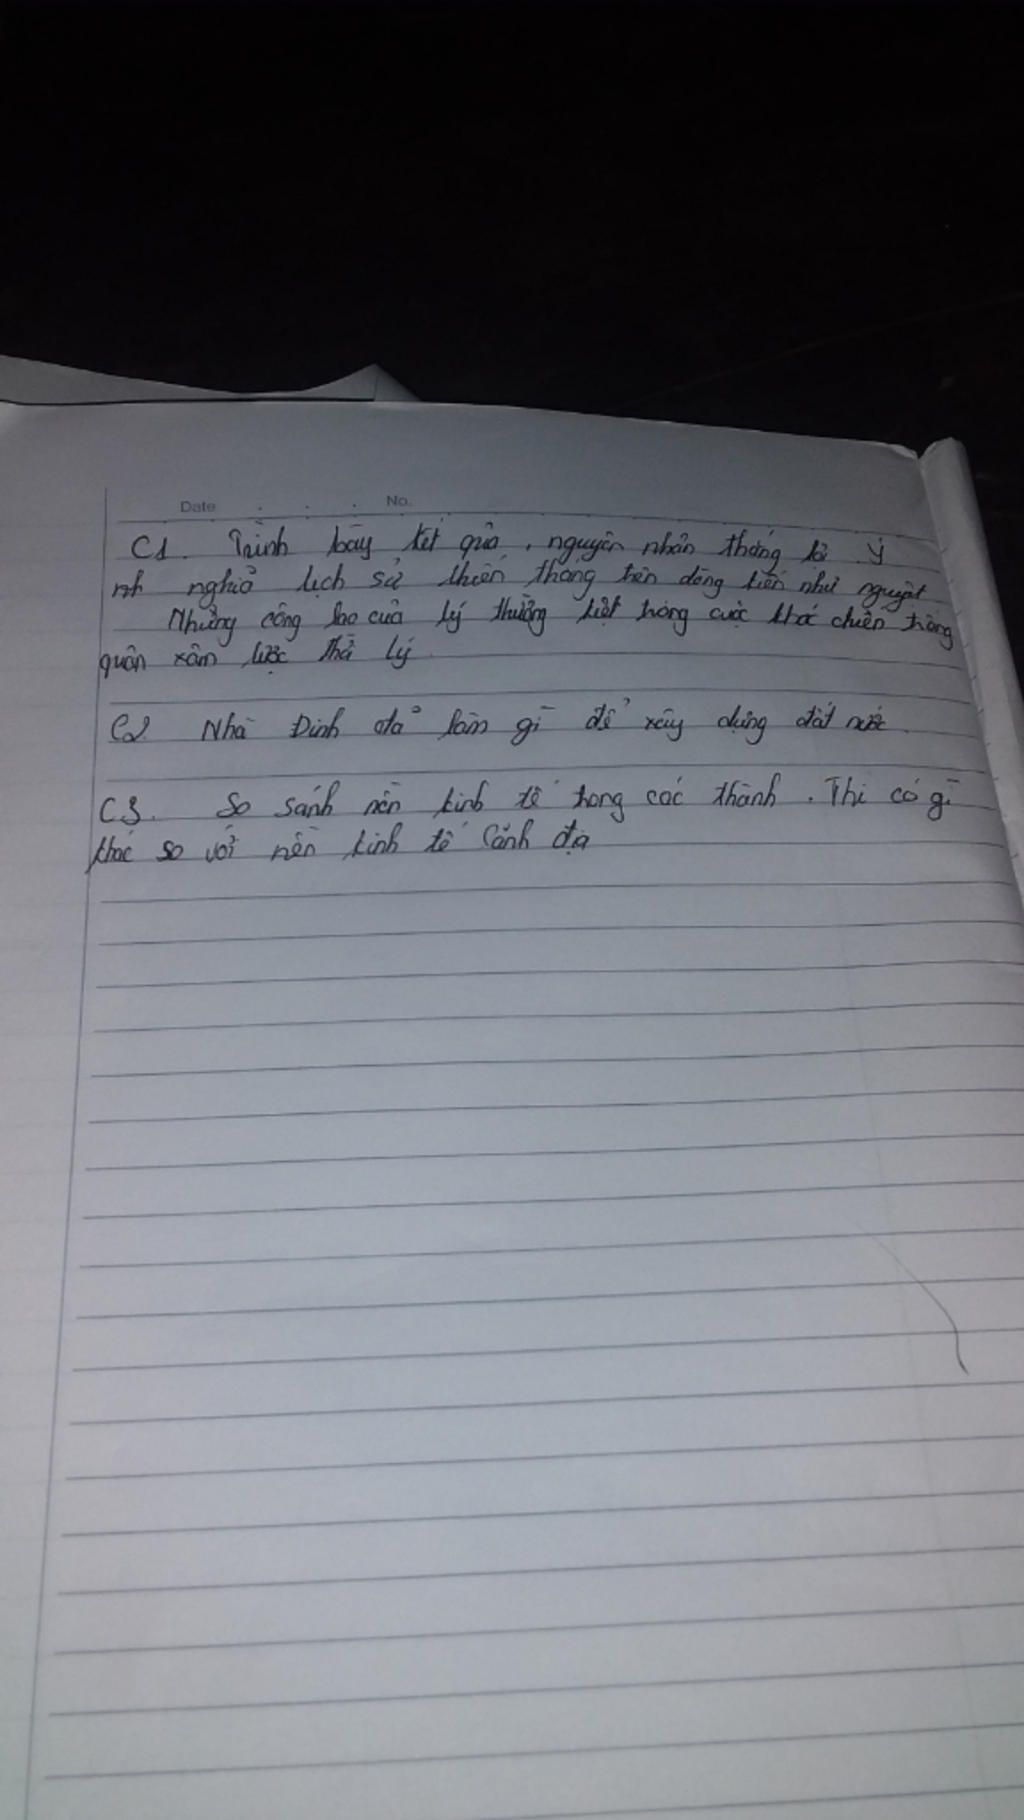 Date . . . No.
C1. Trình bày kết quả, nguyên nhân thắng lợi ý
nh nghĩa lịch sử chiến thắng trên dòng như nguyệt
Những công lao của lý thường kiệt trong cuộc khác chiến trống
quân xâm lược thời lý
C2. Nhà Đinh đã làm gì để xây dựng đất nước
C3. So sánh nền kinh tế trong các thành. Thì có gì
khác so với nền kinh tế lãnh địa